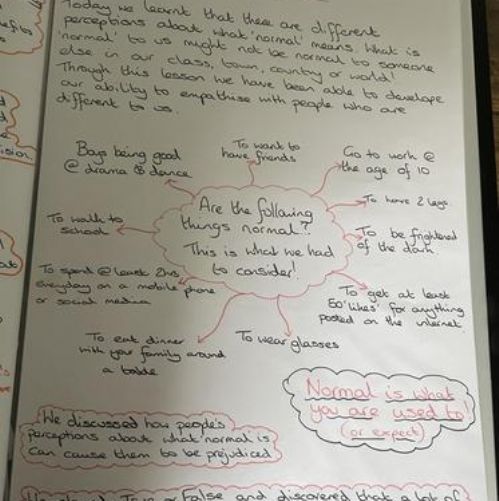 Today we learnt that there are different
perceptions about what 'normal' means. What is
'normal' to us might not be normal to someone
else in our class, town, country or world!
Through this lesson we have been able to develope
our ability to empathise with people who are
different to us.
Boys being good
@ drama & dance
To want to
have friends
Go to work @
the age of 10
To have 2 legs
To walk to
school
Are the following
things normal?
This is what we had
to consider!
To be frightened
of the dark
To spend @ least 2hrs
everyday on a mobile phone
or social media
To get at least
50 'likes' for anything
posted on the internet
To eat dinner
with your family around
a table
To wear glasses
Normal is what
you are used to!
(or expect)
We discussed how people's
perceptions about what 'normal' is
can cause them to be prejudiced
True or False and discovered that a lot of